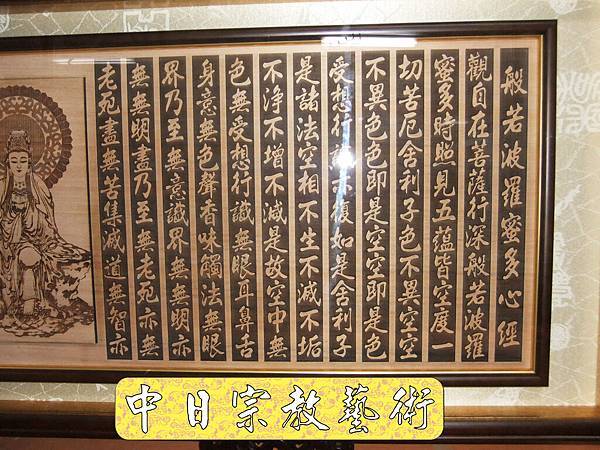 般若波羅蜜多心經
觀自在菩薩行深般若波羅
蜜多時照見五蘊皆空度一
切苦厄舍利子色不異空空
不異色色即是空空即是色
受想行識亦復如是舍利子
是諸法空相不生不滅不垢
不淨不增不減是故空中無
色無受想行識無眼耳鼻舌
身意無色聲香味觸法無眼
界乃至無意識界無無明亦
無無明盡乃至無老死亦無
老死盡無苦集滅道無智亦
中日宗教藝術